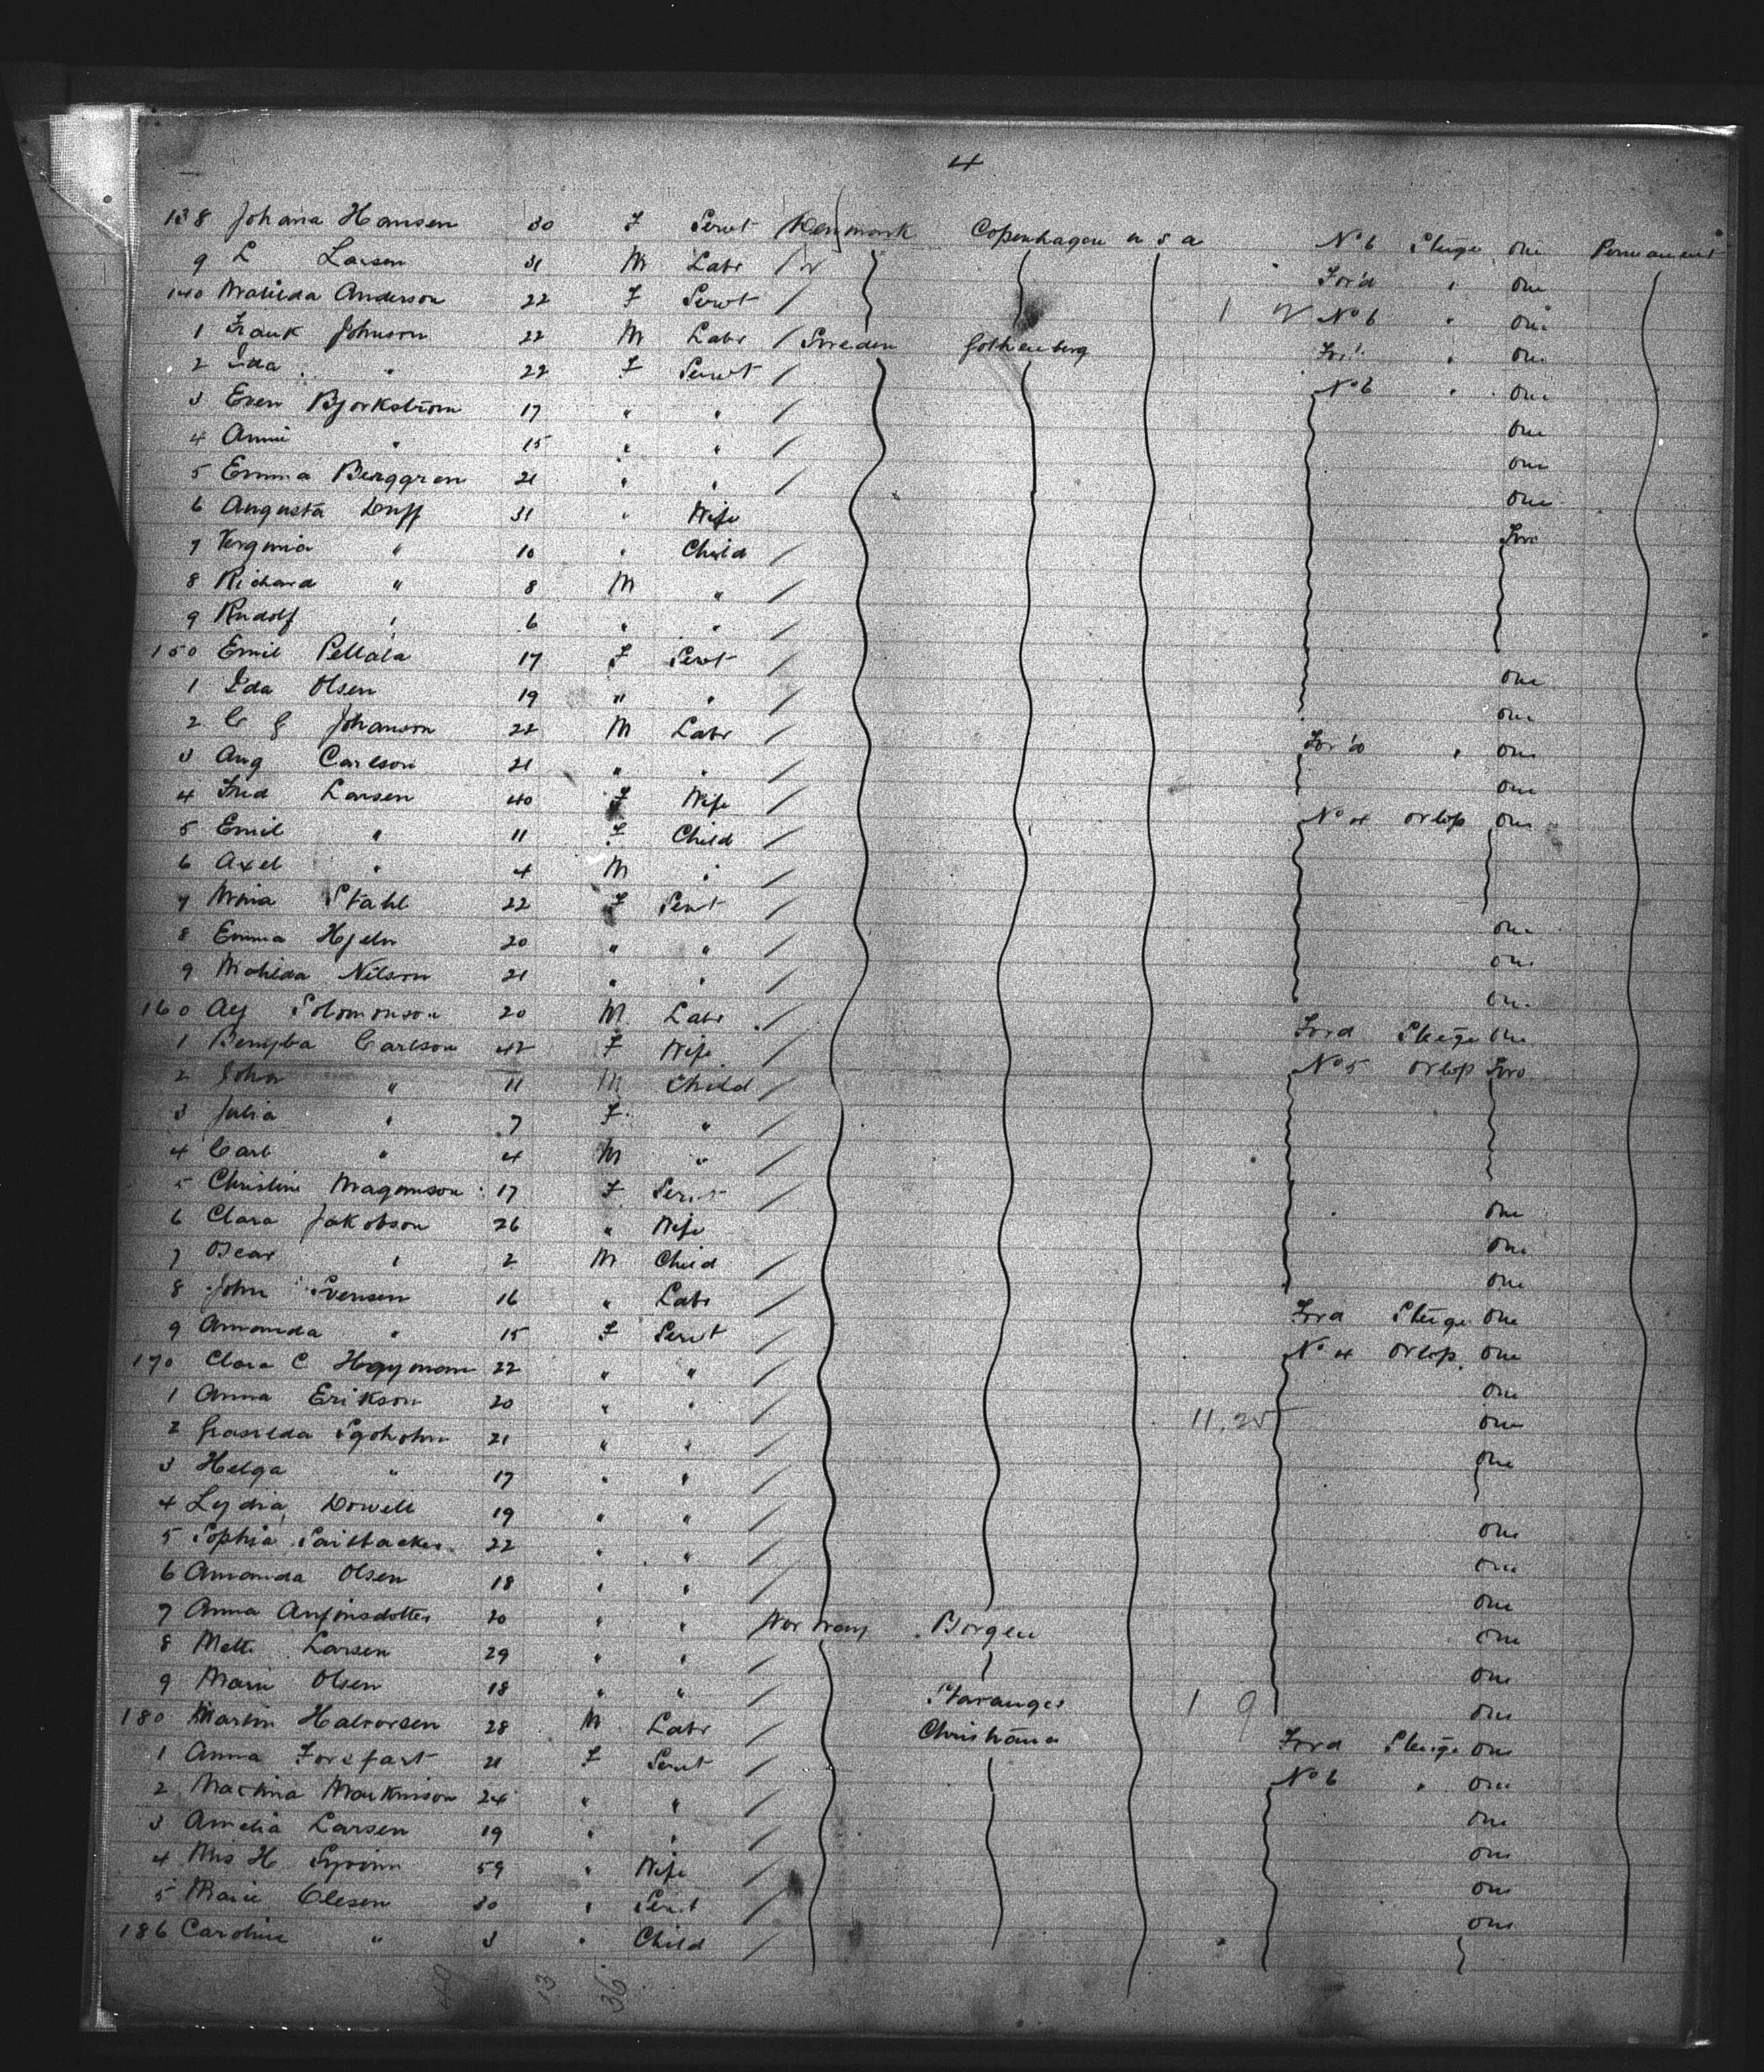 4
138 Johana Hansen 30 F Servt Denmark Copenhagen u s a No 6 Steige one Permanent
9 L Larsen 31 M Labr For'd " one
140 Matilda Anderson 22 F Servt No 6 " one
1 Frank Johnson 22 M Labr Sweden Gothenberg For'd " one
2 Ida " 22 F Servt No 6 " one
3 Even Bjorkstrom 17 " " one
4 Anni " 15 " " one
5 Emma Berggren 21 " " one
6 Augusta Duff 31 " Wife Two
7 Verginia " 10 " Child
8 Richard " 8 M "
9 Rudolf " 6 " "
150 Emil Pellala 17 F Servt one
1 Ida Olsen 19 " " one
2 C G Johanson 22 M Labr For'd " one
3 Aug Carlson 21 " " one
4 Larsen 40 F Wife No 4 Orlop one
5 Emil " 11 F Child
6 Axel " 4 M "
7 Mina Stahl 22 F Servt one
8 Emma Hjelm 20 " " one
9 Mahilda Nilson 21 " " one
160 Solomonson 20 M Labr Ford Steige one
1 Carlson 42 F Wife No 5 Orlop Two
2 John " 11 M Child
3 Julia " 7 F "
4 Carl " 4 M "
5 Christine Magonson 17 F Servt one
6 Clara Jakobson 26 " Wife one
7 Oscar " 2 M Child one
8 John Svensen 16 " Labr Ford Steige one
9 Amanda " 15 F Servt No 4 Orlop one
170 Clara C 22 " " one
1 Anna Erikson 20 " " 11.25 one
2 21 " " one
3 Helga " 17 " "
4 Lydia Dowell 19 " " one
5 Sophia 22 " " one
6 Amanda Olsen 18 " " one
7 Anna Anfinsdotter 20 " " Norway Borgen one
8 Larsen 29 " " one
9 Marie Olsen 18 " " Stavanger 1 9 one
180 Martin Halvorsen 28 M Labr Christiana Ford Steige one
1 Anna 21 F Servt No 6 " one
2 24 " " one
3 Amelia Larsen 19 " " one
4 Mrs H 59 " Wife one
5 Marie Olesen 30 " Servt one
186 Caroline " 3 " Child
49 13 36